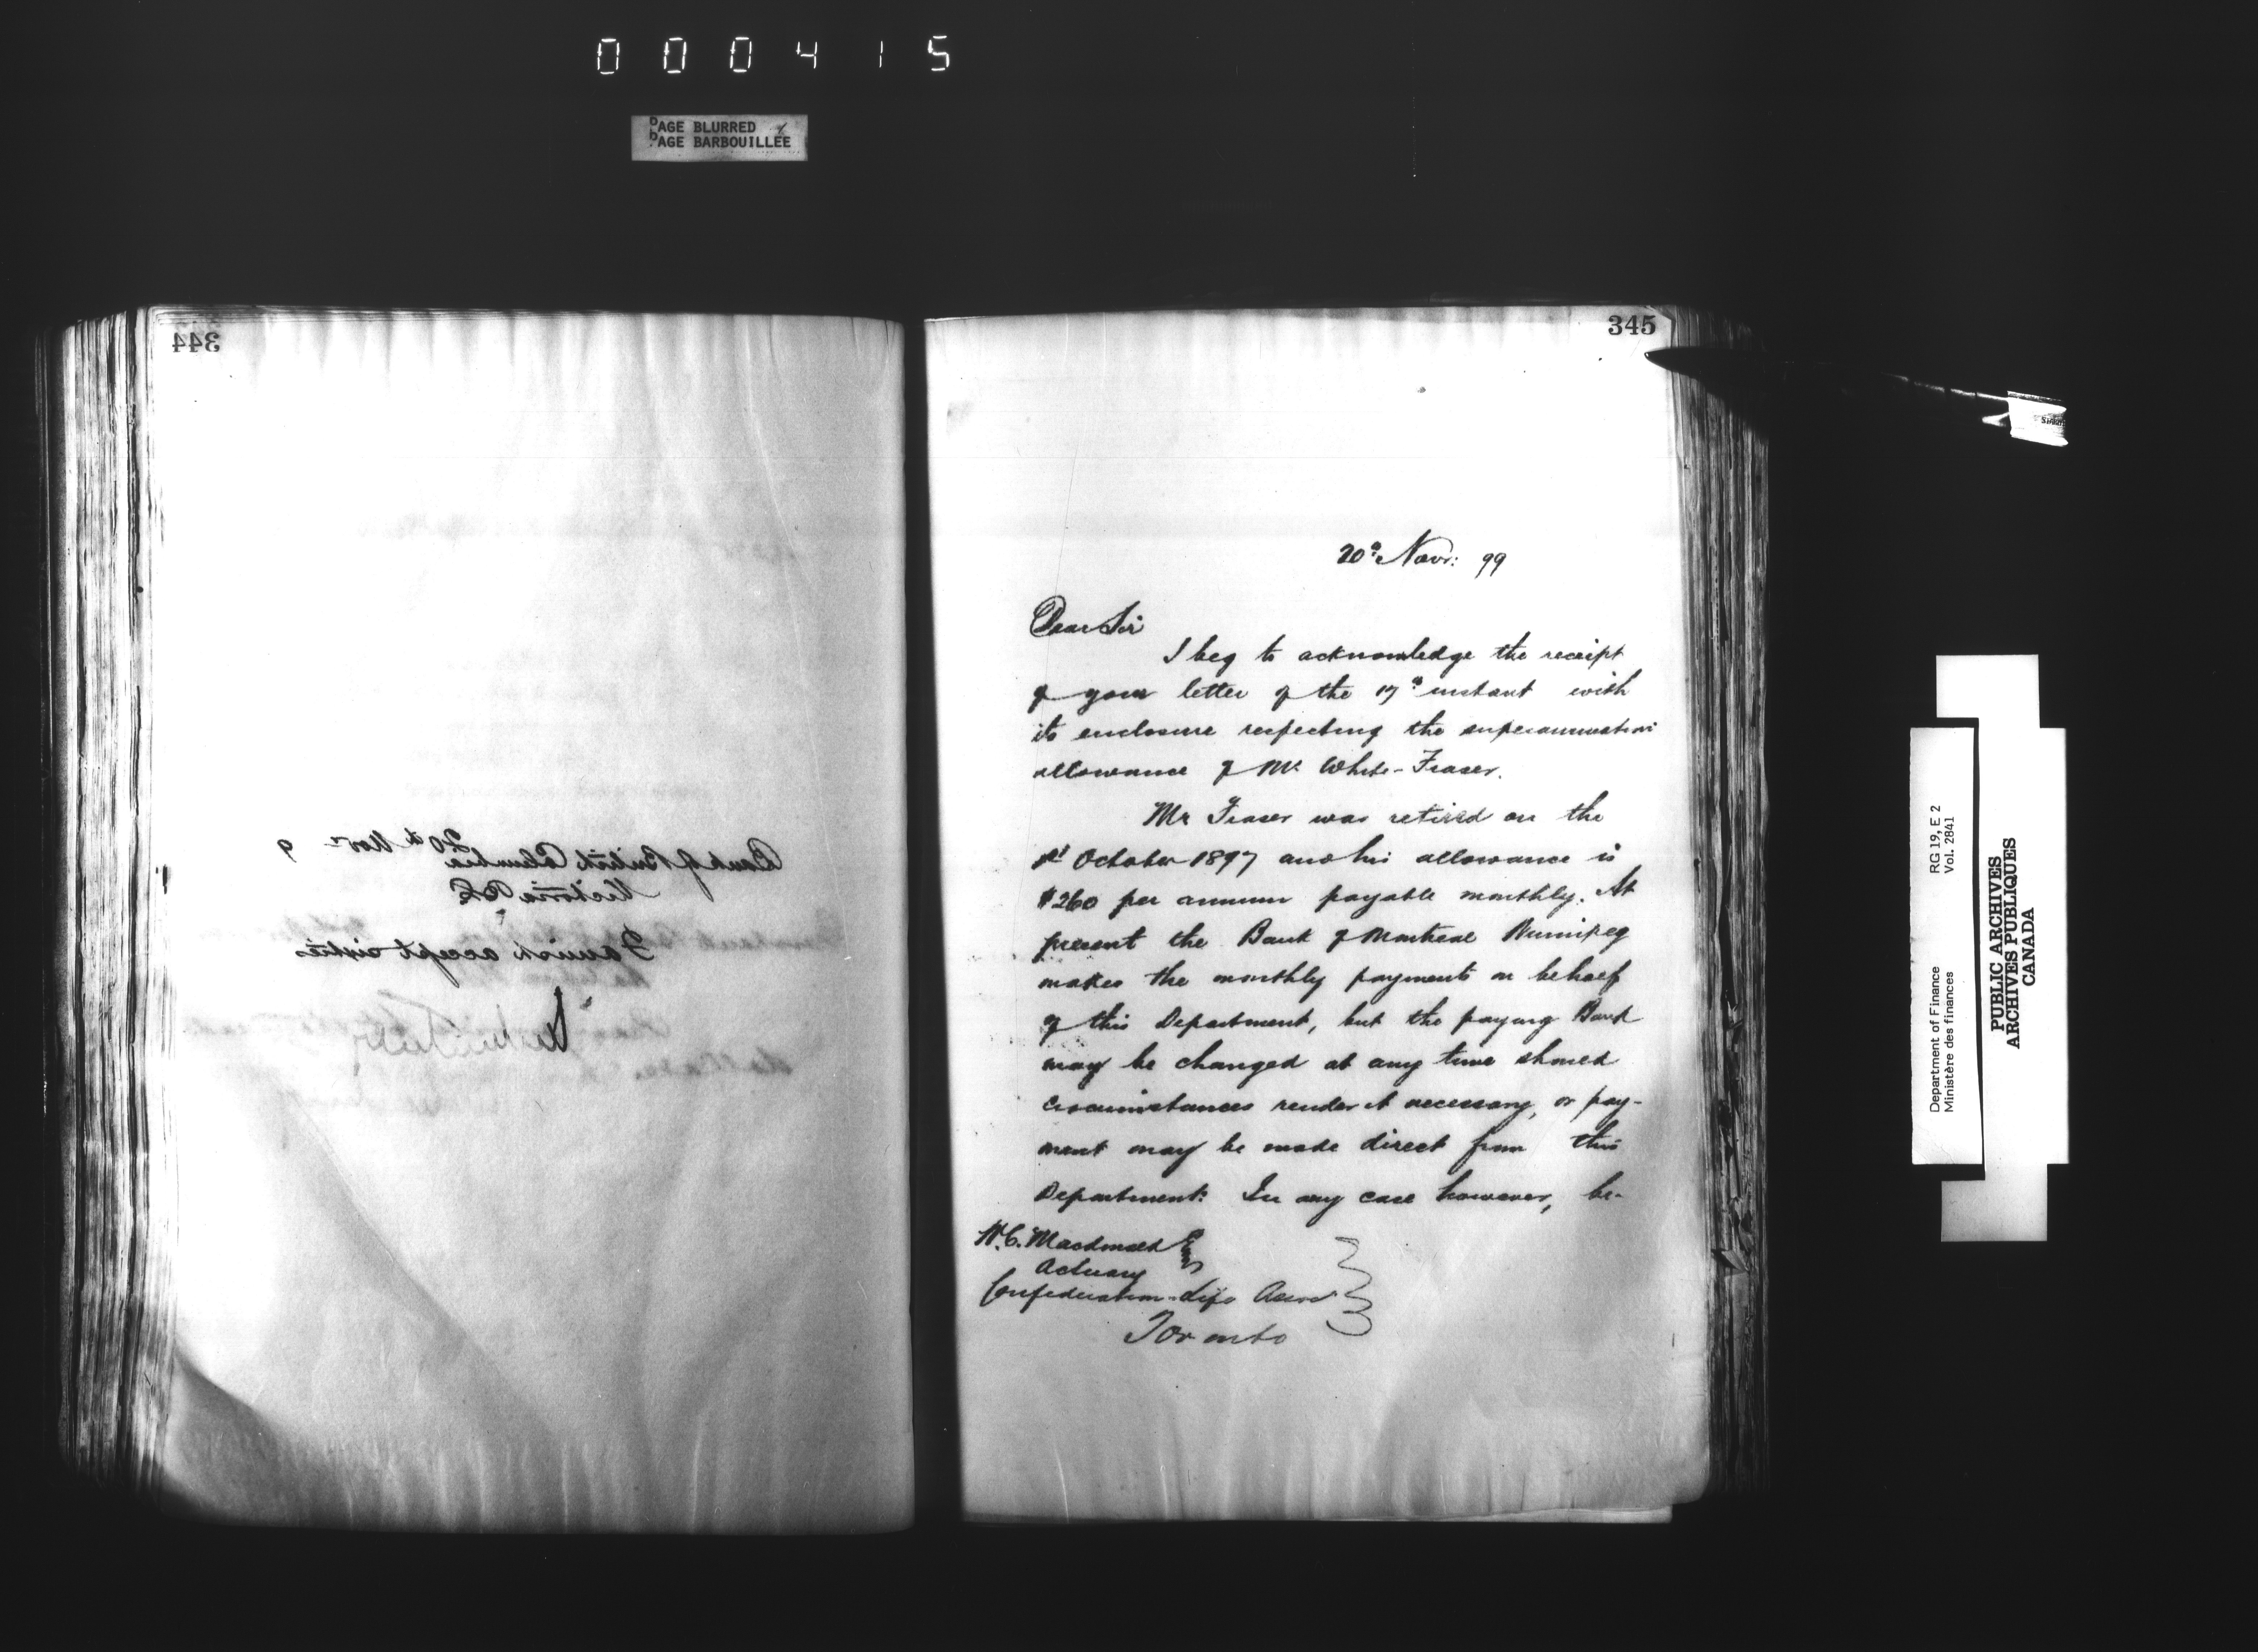 000415
PAGE BLURRED
PAGE BARBOUILLÉE
344
20th Nov
Bank of British Columbia
Victoria BC
accept sixties
345
20th Novr: 99
Dear Sir
I beg to acknowledge the receipt
of your letter of the 17th instant with
its enclosure respecting the superannuation
allowance of Mr White-Fraser.
Mr Fraser was retired on the
1st October 1897 and his allowance is
$260 per annum payable monthly. At
present the Bank of Montreal Winnipeg
makes the monthly payments on behalf
of this Department, but the paying Bank
may be changed at any time should
circumstances render it necessary, or pay-
ment may be made direct from this
Department. In any case however, be-
W.C. Macdonald Esq
Actuary
Confederation Life Assocn
Toronto
Department of Finance
Ministère des finances
RG 19, E 2
Vol. 2841
PUBLIC ARCHIVES
ARCHIVES PUBLIQUES
CANADA